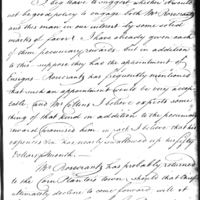 I have to suggest whether it would
not be good policy to engage both Mr Rosecrantz
and this man in our interest by some settled
marks of favor? I have already given each
of them pecuniary rewards. but in addition
to this suppose they had the appointment of
Ensigns. Rosecrantz has frequently mentioned
that such an appointment would be very accep
table and Mr Ellens I believe expects some
thing of that kind in addition to the pecuniary
reward promised him in fact I believe that his
expences
Dollars month.
Mr Rosecrantz has probably returned
to the Corn Planters town. should that Chief
ultimately decline to come forward will it